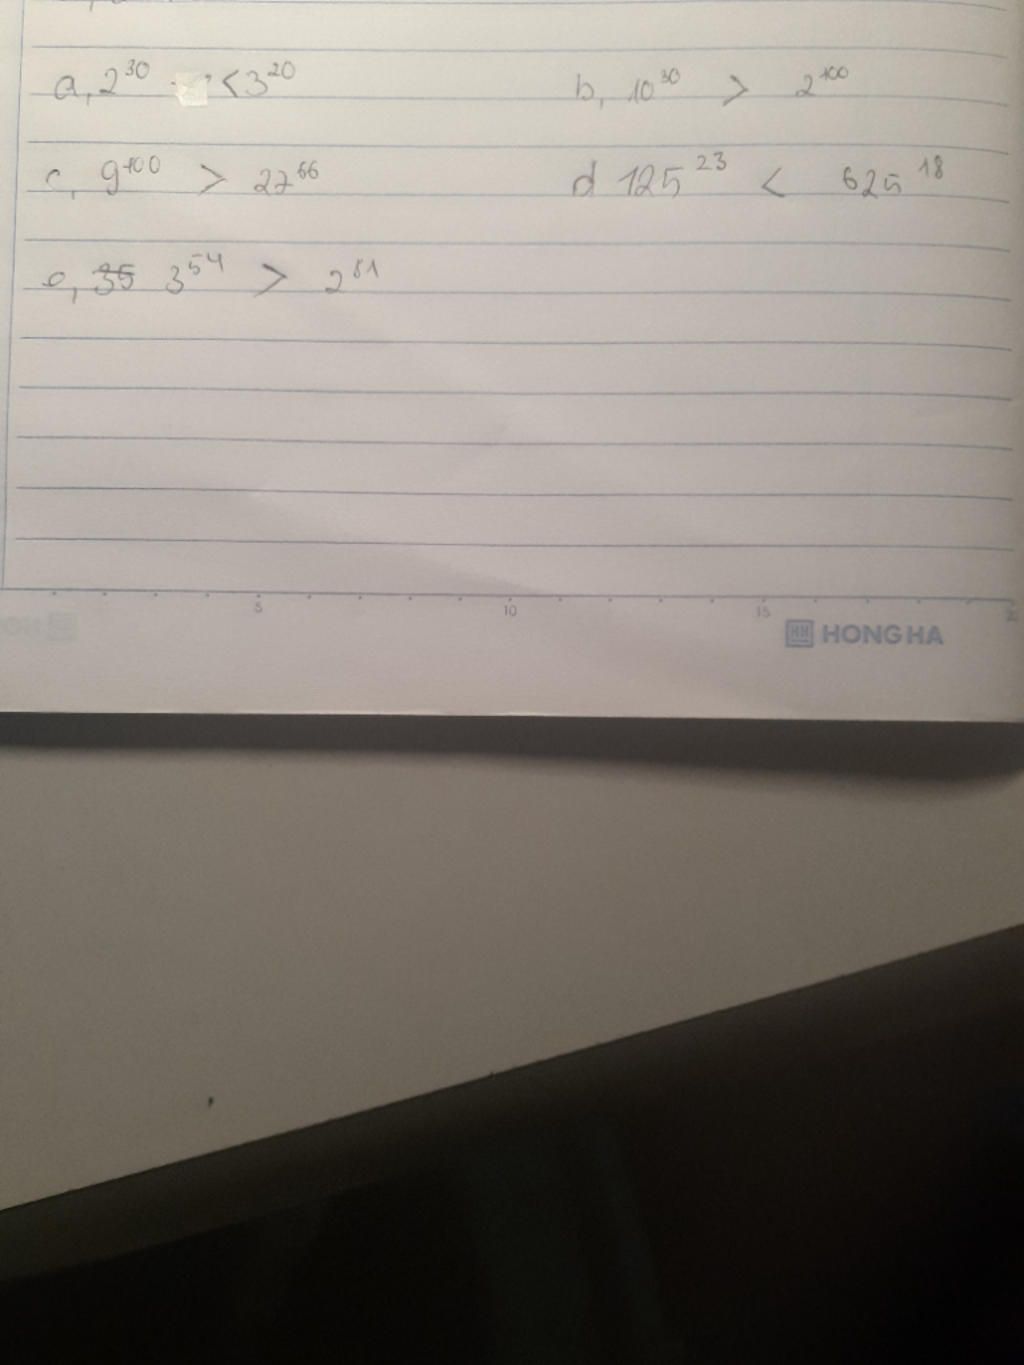 a, 2³⁰ < 3²⁰ b, 10³⁰ > 2¹⁰⁰
c, 9¹⁰⁰ > 27⁶⁶ d 125²³ < 625¹⁸
e, 35 3⁵⁴ > 2⁸¹
5 10 15 20
HH HONG HA